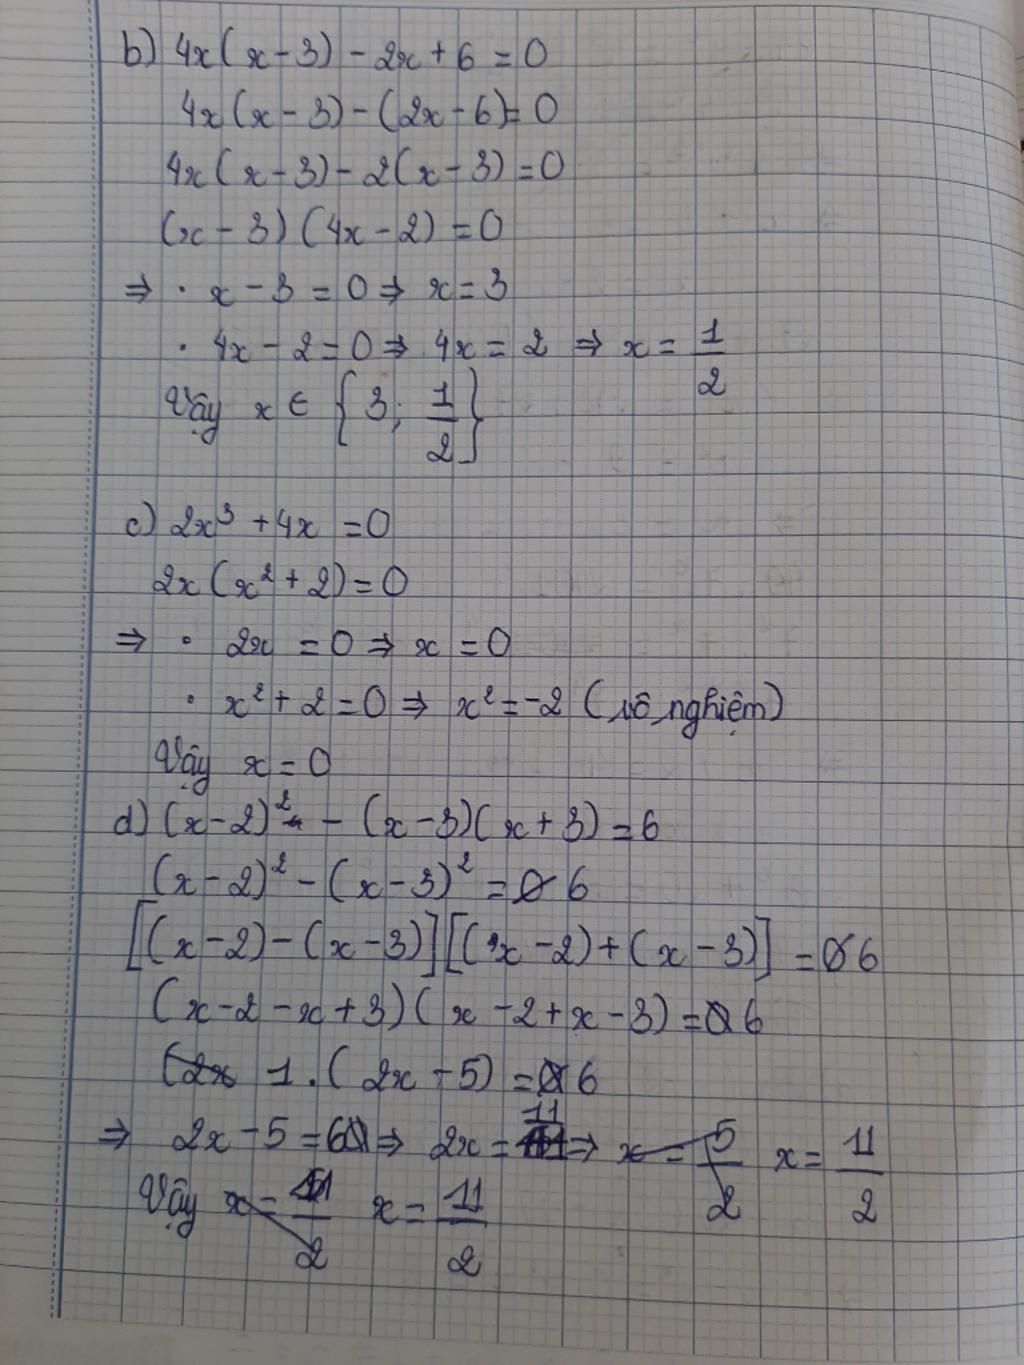 b) 4x(x-3) - 2x + 6 = 0
4x(x-3) - (2x-6) = 0
4x(x-3) - 2(x-3) = 0
(x-3)(4x-2) = 0
⇒ · x - 3 = 0 ⇒ x = 3
· 4x - 2 = 0 ⇒ 4x = 2 ⇒ x = 1/2
Vậy x ∈ {3; 1/2}
c) 2x³ + 4x = 0
2x(x² + 2) = 0
⇒ · 2x = 0 ⇒ x = 0
· x² + 2 = 0 ⇒ x² = -2 (vô nghiệm)
Vậy x = 0
d) (x-2)² - (x-3)(x+3) = 6
(x-2)² - (x-3)² = 6
[(x-2) - (x-3)][(x-2) + (x-3)] = 6
(x-2-x+3)(x-2+x-3) = 6
1.(2x-5) = 6
⇒ 2x - 5 = 6 ⇒ 2x = 11 ⇒ x = 11/2
Vậy x = 11/2